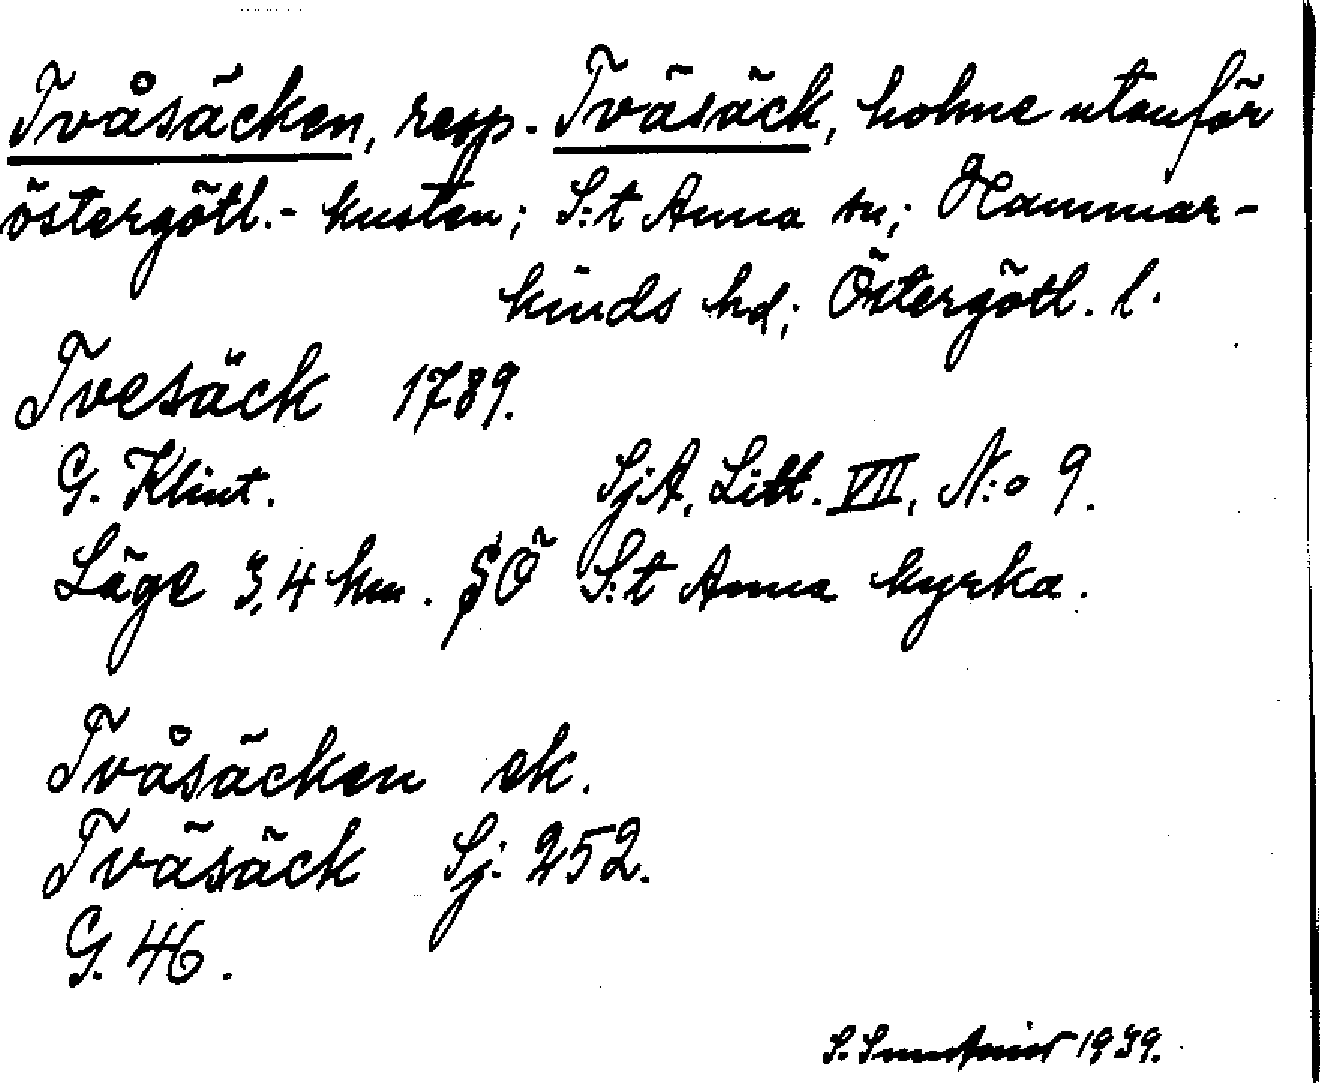 Tvåsäcken, resp. Tväsäck, holme utanför
östergötl.- kusten; S:t Anna sn; Hammar-
kinds hd; Östergötl. l.
Tvesäck 1789.
G. Klint. SjA, Litt. VII, N:o 9.
Läge 3,4 km. SÖ S:t Anna kyrka.
Tvåsäcken ek.
Tväsäck Sj. 252.
G. 46.
S. 1939.